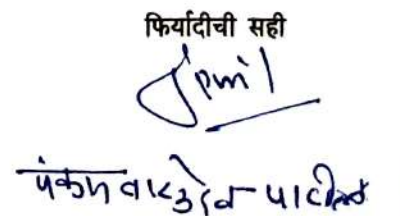 फिर्यादीची सही
पंकज वासुदेव पाटील